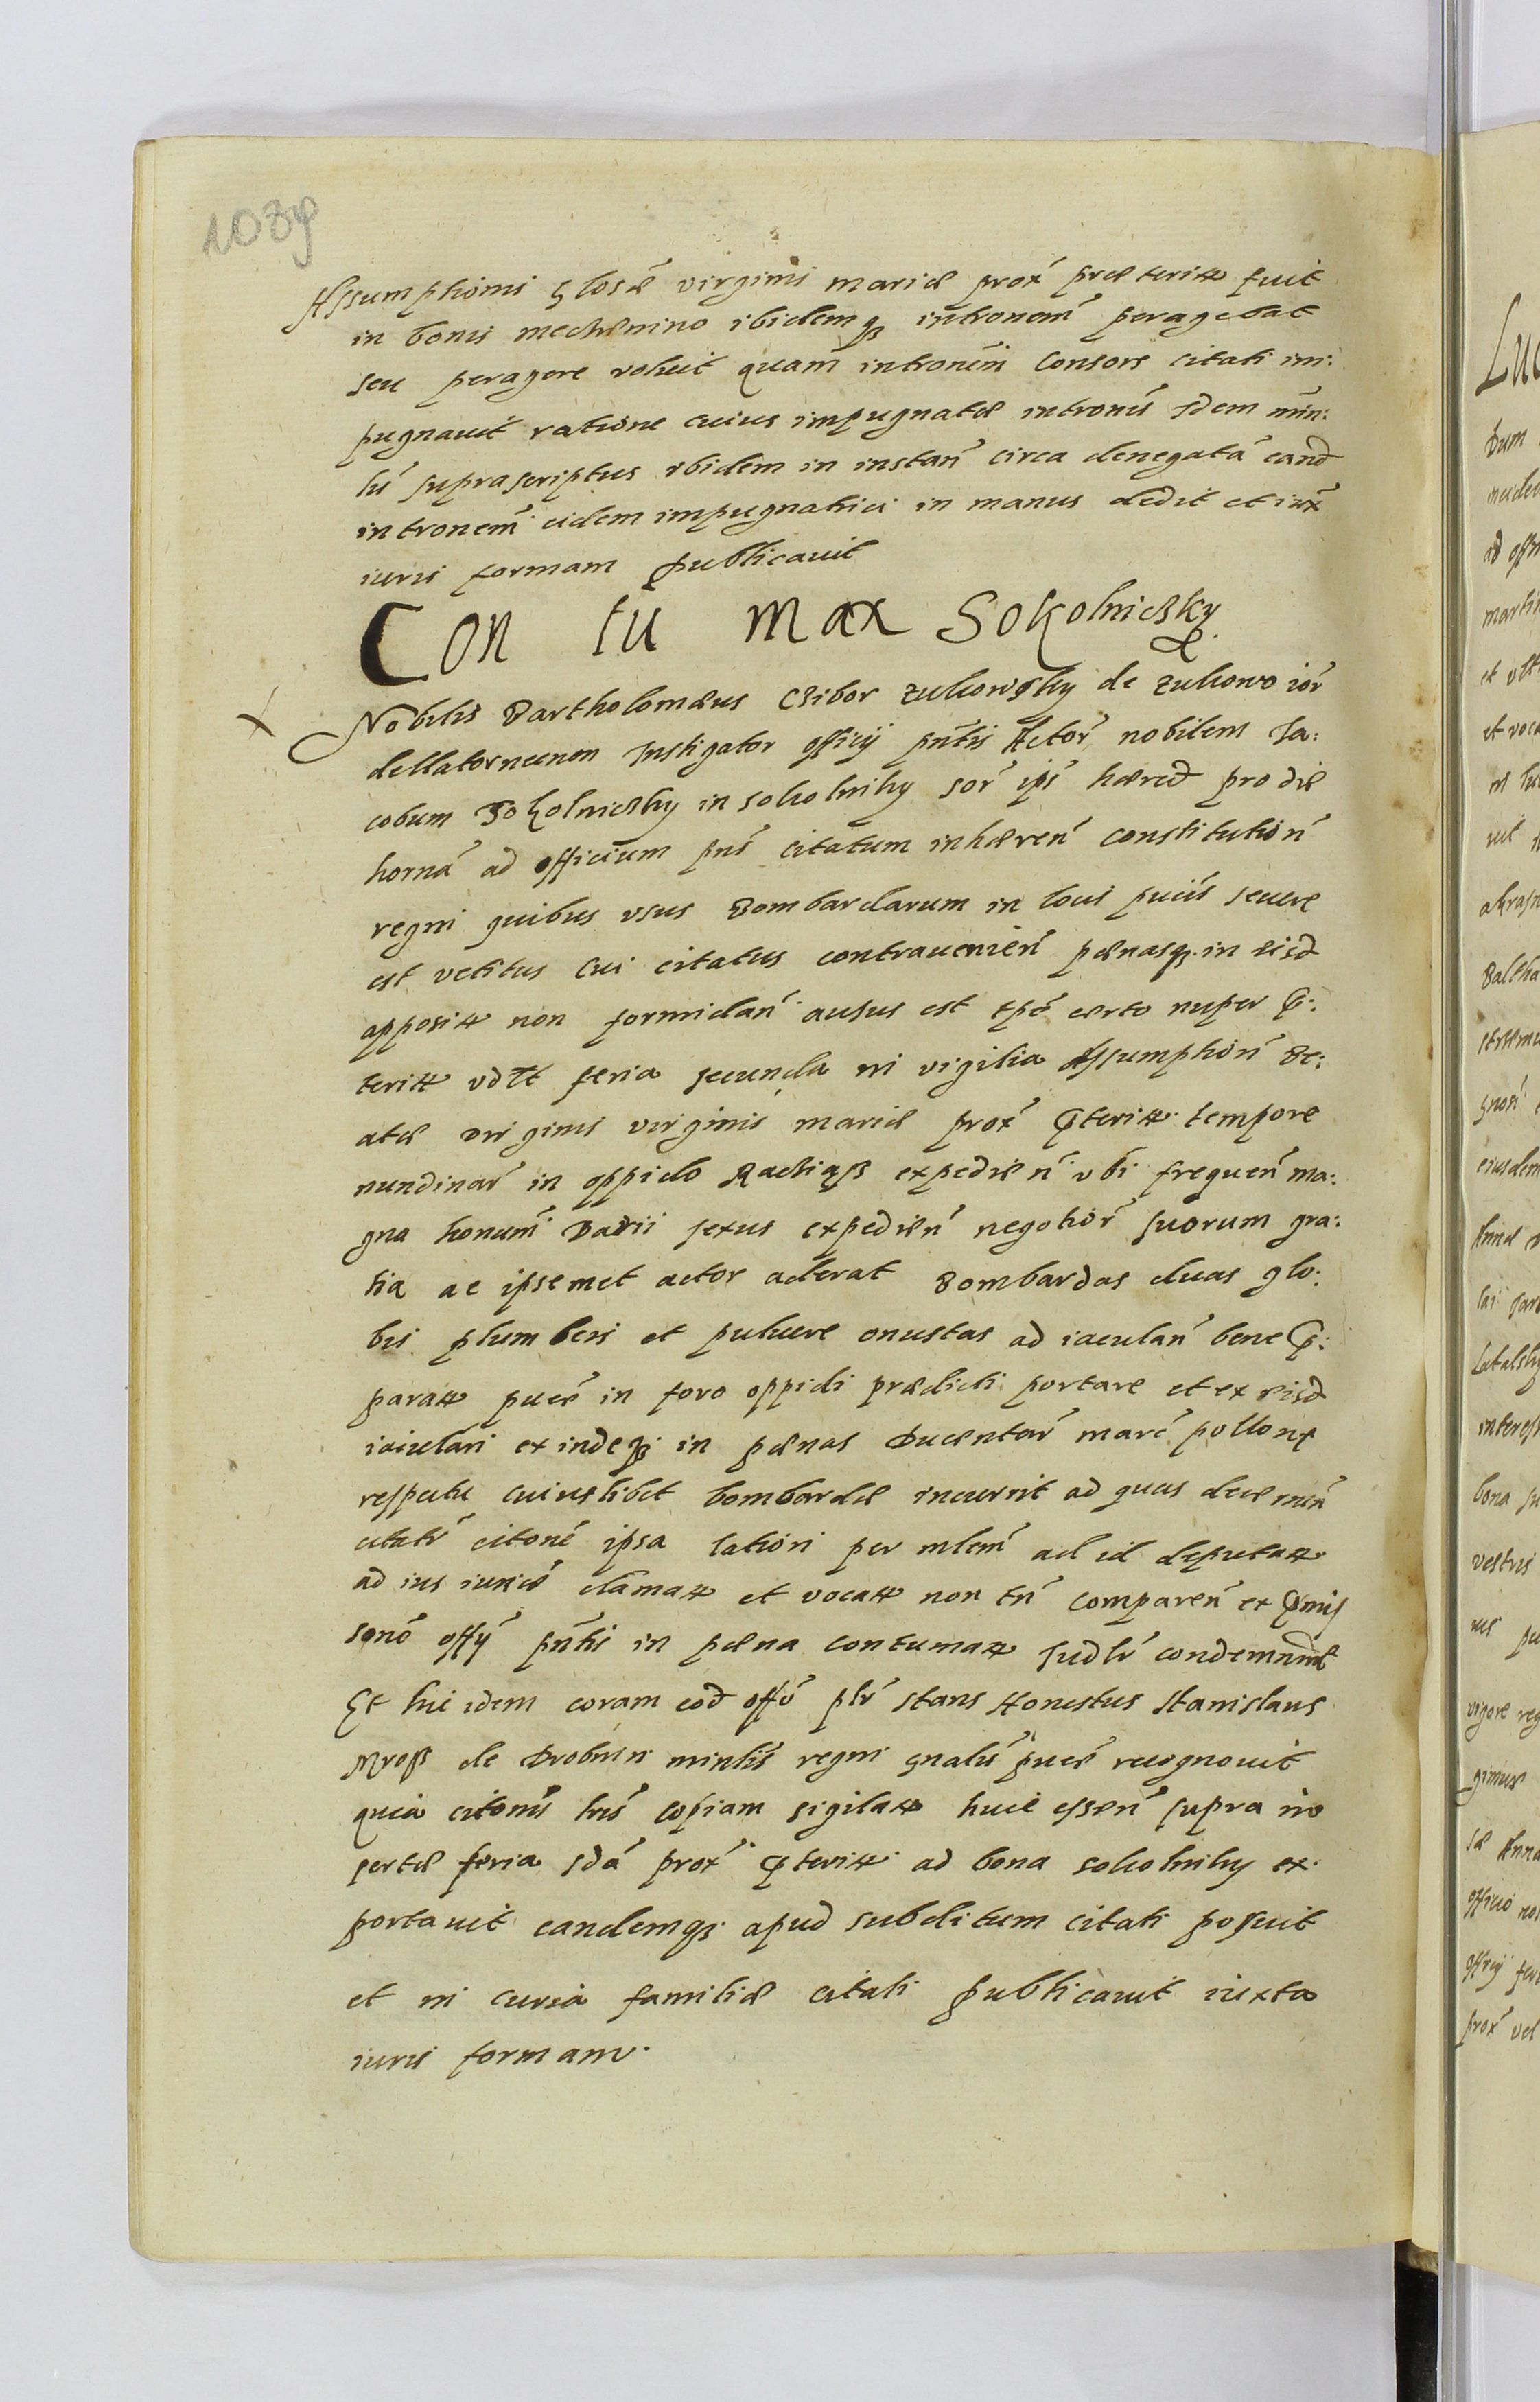 103v
Assumptionis glosæ virginis mariæ prox præteritt fuit
in bonis mechænino ibidemq intronem peragebat
seu peragere voluit quam intronem Consors citati im:
pugnavit ratione cuius impugnatæ intronis Idem min:
lis suprascriptus ibidem in instan circa denegatā eand
intronem eidem impugnatrici in manus dedit et iux
iuris formam publicavit
Con tu max Sokolniczky
Nobilis Bartholomæus Czibor zukowsky de zukowo ior
dellatornecnon Instigator officij pntis Actor nobilem Ja:
cobum Sokolniczky in sokolniky sor ips hæred pro die
hornā ad officium pns citatum inhæren constitution
regni quibus usus Bombardarum in locis pucis severe
est vetitus Cui citatus contravenien pænasq in eisd
appositt non formidan ausus est tpe certo nuper p:
teritt vdlt feria secunda in vigilia Assumption Be:
atæ virginis virginis mariæ prox pteritt tempore
nundinar in oppido Racziąß expedien ubi frequen ma:
gna honum Varii sexus expedien negotior suorum gra:
tia ac ipsemet actor aderat Bombardas duas glo:
bis plumbeis et pulvere onustas ad iaculan bene p:
paratt puce in foro oppidi prædicti portare et ex eisd
iaculari ex indeq in pænas Ducentar marc pollonx
respectu cuiuslibet bombardæ incurrit ad quas decernen
citatr citone ipsa lationi per mlem ad id deputatt
ad ius iurice clamatt et vocatt non tn comparen ex pmis
sono offy pntis in pæna contumatt Judlr condemnnd
Et hic idem coram eod offo plr stans Honestus Stanislaus
Mroß de Drobnin minlis regni gnalis puce recognovit
quia citonis lris copiam sigilatt huic essen supra in
sertæ feria sda prox pteritt ad bona sokolniky ex
portavit eandemq apud subditum citati posuit
et in curia familiæ citati publicavit iuxta
iuris formam.